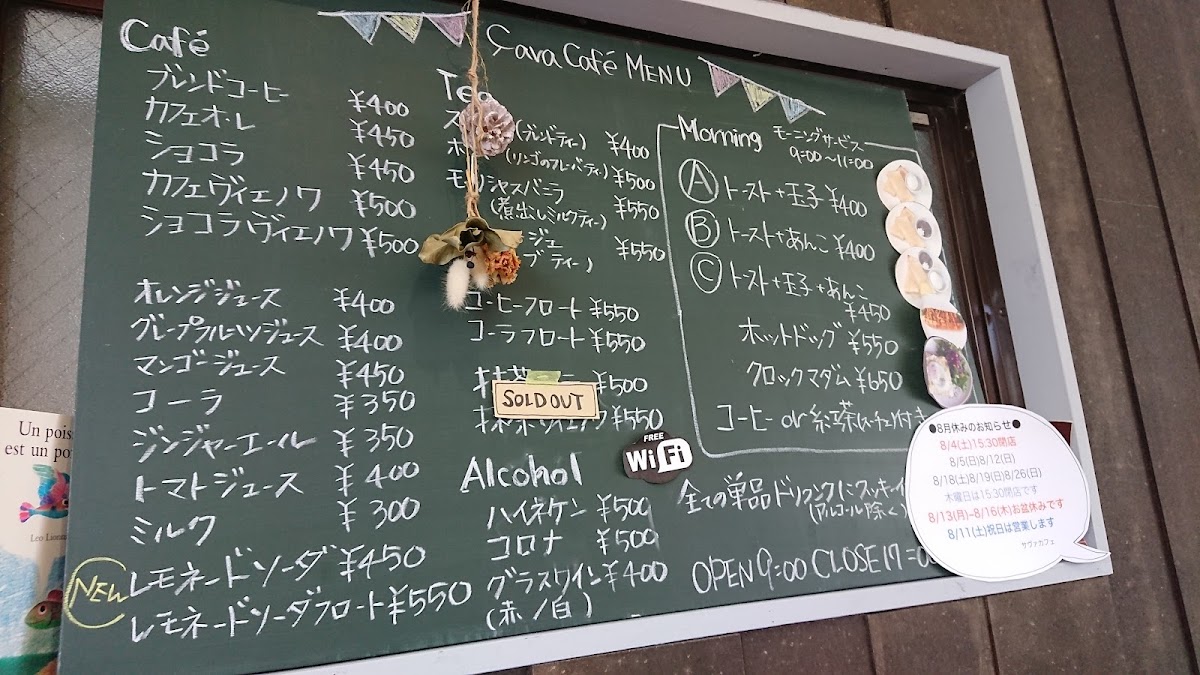 Café
ブレンドコーヒー ¥400
カフェオ・レ ¥450
ショコラ ¥450
カフェヴィエノワ ¥500
ショコラヴィエノワ ¥500
オレンジジュース ¥400
グレープフルーツジュース ¥400
マンゴージュース ¥450
コーラ ¥350
ジンジャーエール ¥350
トマトジュース ¥400
ミルク ¥300
NEW
レモネードソーダ ¥450
レモネードソーダフロート ¥550
Çava Café MENU
Tea
(ブレンドティー) ¥400
(リンゴのフレーバティー) ¥500
¥550
(煮出しミルクティー)
¥550
コーヒーフロート ¥550
コーラフロート ¥550
¥500
SOLD OUT
¥550
FREE
WiFi
Alcohol
ハイネケン ¥500
コロナ ¥500
グラスワイン ¥400
(赤/白)
Morning モーニングサービス
9:00～11:00
Ⓐ トースト+玉子 ¥400
Ⓑ トースト+あんこ ¥400
Ⓒ トースト+玉子+あんこ
¥450
ホットドッグ ¥550
クロックマダム ¥650
コーヒー or 紅茶 付き
全ての単品ドリンクに
(アルコール除く)
OPEN 9:00 CLOSE 17:00
●8月休みのお知らせ●
8/4(土)15:30閉店
8/5(日)8/12(日)
8/18(土)8/19(日)8/26(日)
木曜日は15:30閉店です
8/13(月)~8/16(木)お盆休みです
8/11(土)祝日は営業します
サヴァカフェ
Un
est un
Leo